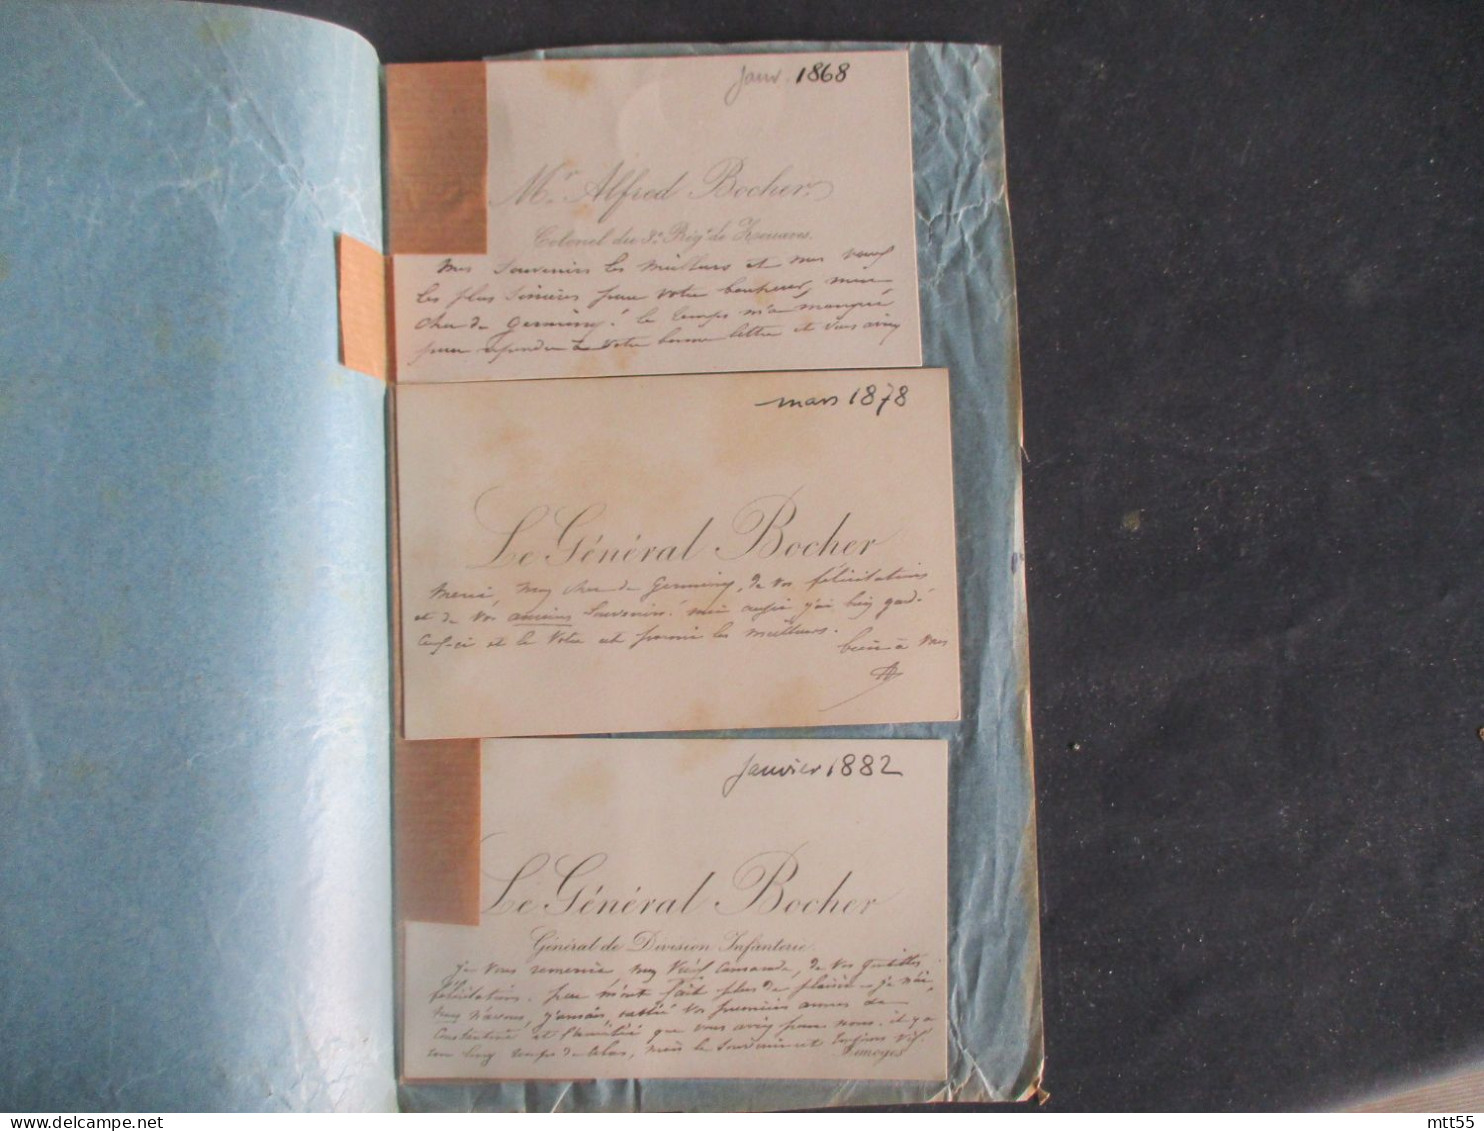 Janv. 1868
Mr. Alfred Bocher.
Colonel du 3e. Régt. de Zouaves.
Mes souvenirs les meilleurs et mes vœux
les plus sincères pour votre bonheur, mon
cher de Germiny! le temps m'a manqué
pour répondre à votre bonne lettre et vous aviez
mars 1878
Le Général Bocher
Merci, mon cher de Germiny, de vos félicitations
et de vos anciens souvenirs! moi aussi j'ai bien gardé
ceux-ci et le vôtre est parmi les meilleurs.
bien à vous
AB
Janvier 1882
Le Général Bocher
Général de Division Infanterie.
Je vous remercie, mon vieux camarade, de vos gentilles
félicitations. peu m'ont fait plus de plaisir - je n'ai,
nous n'avons, jamais oublié vos premières années de
Constantine et l'amitié que vous aviez pour nous. il y a
bien long temps de cela, mais le souvenir est toujours vif.
Limoges
mtt55